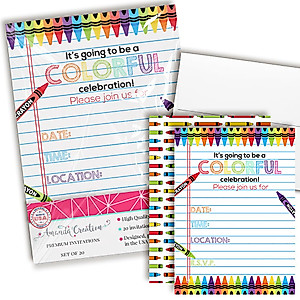 it's going to be a
COLORFUL
celebration!
Please join us for...
DATE:
TIME:
LOCATION:
CRAYON
MADE IN
USA
Amanda Creation
PREMIUM INVITATIONS
SET OF 20
• High Quality
• 20 invitation
• Designed,
in the USA
it's going to be a
COLORFUL
celebration!
Please join us for...
DATE:
TIME:
LOCATION:
R.S.V.P.